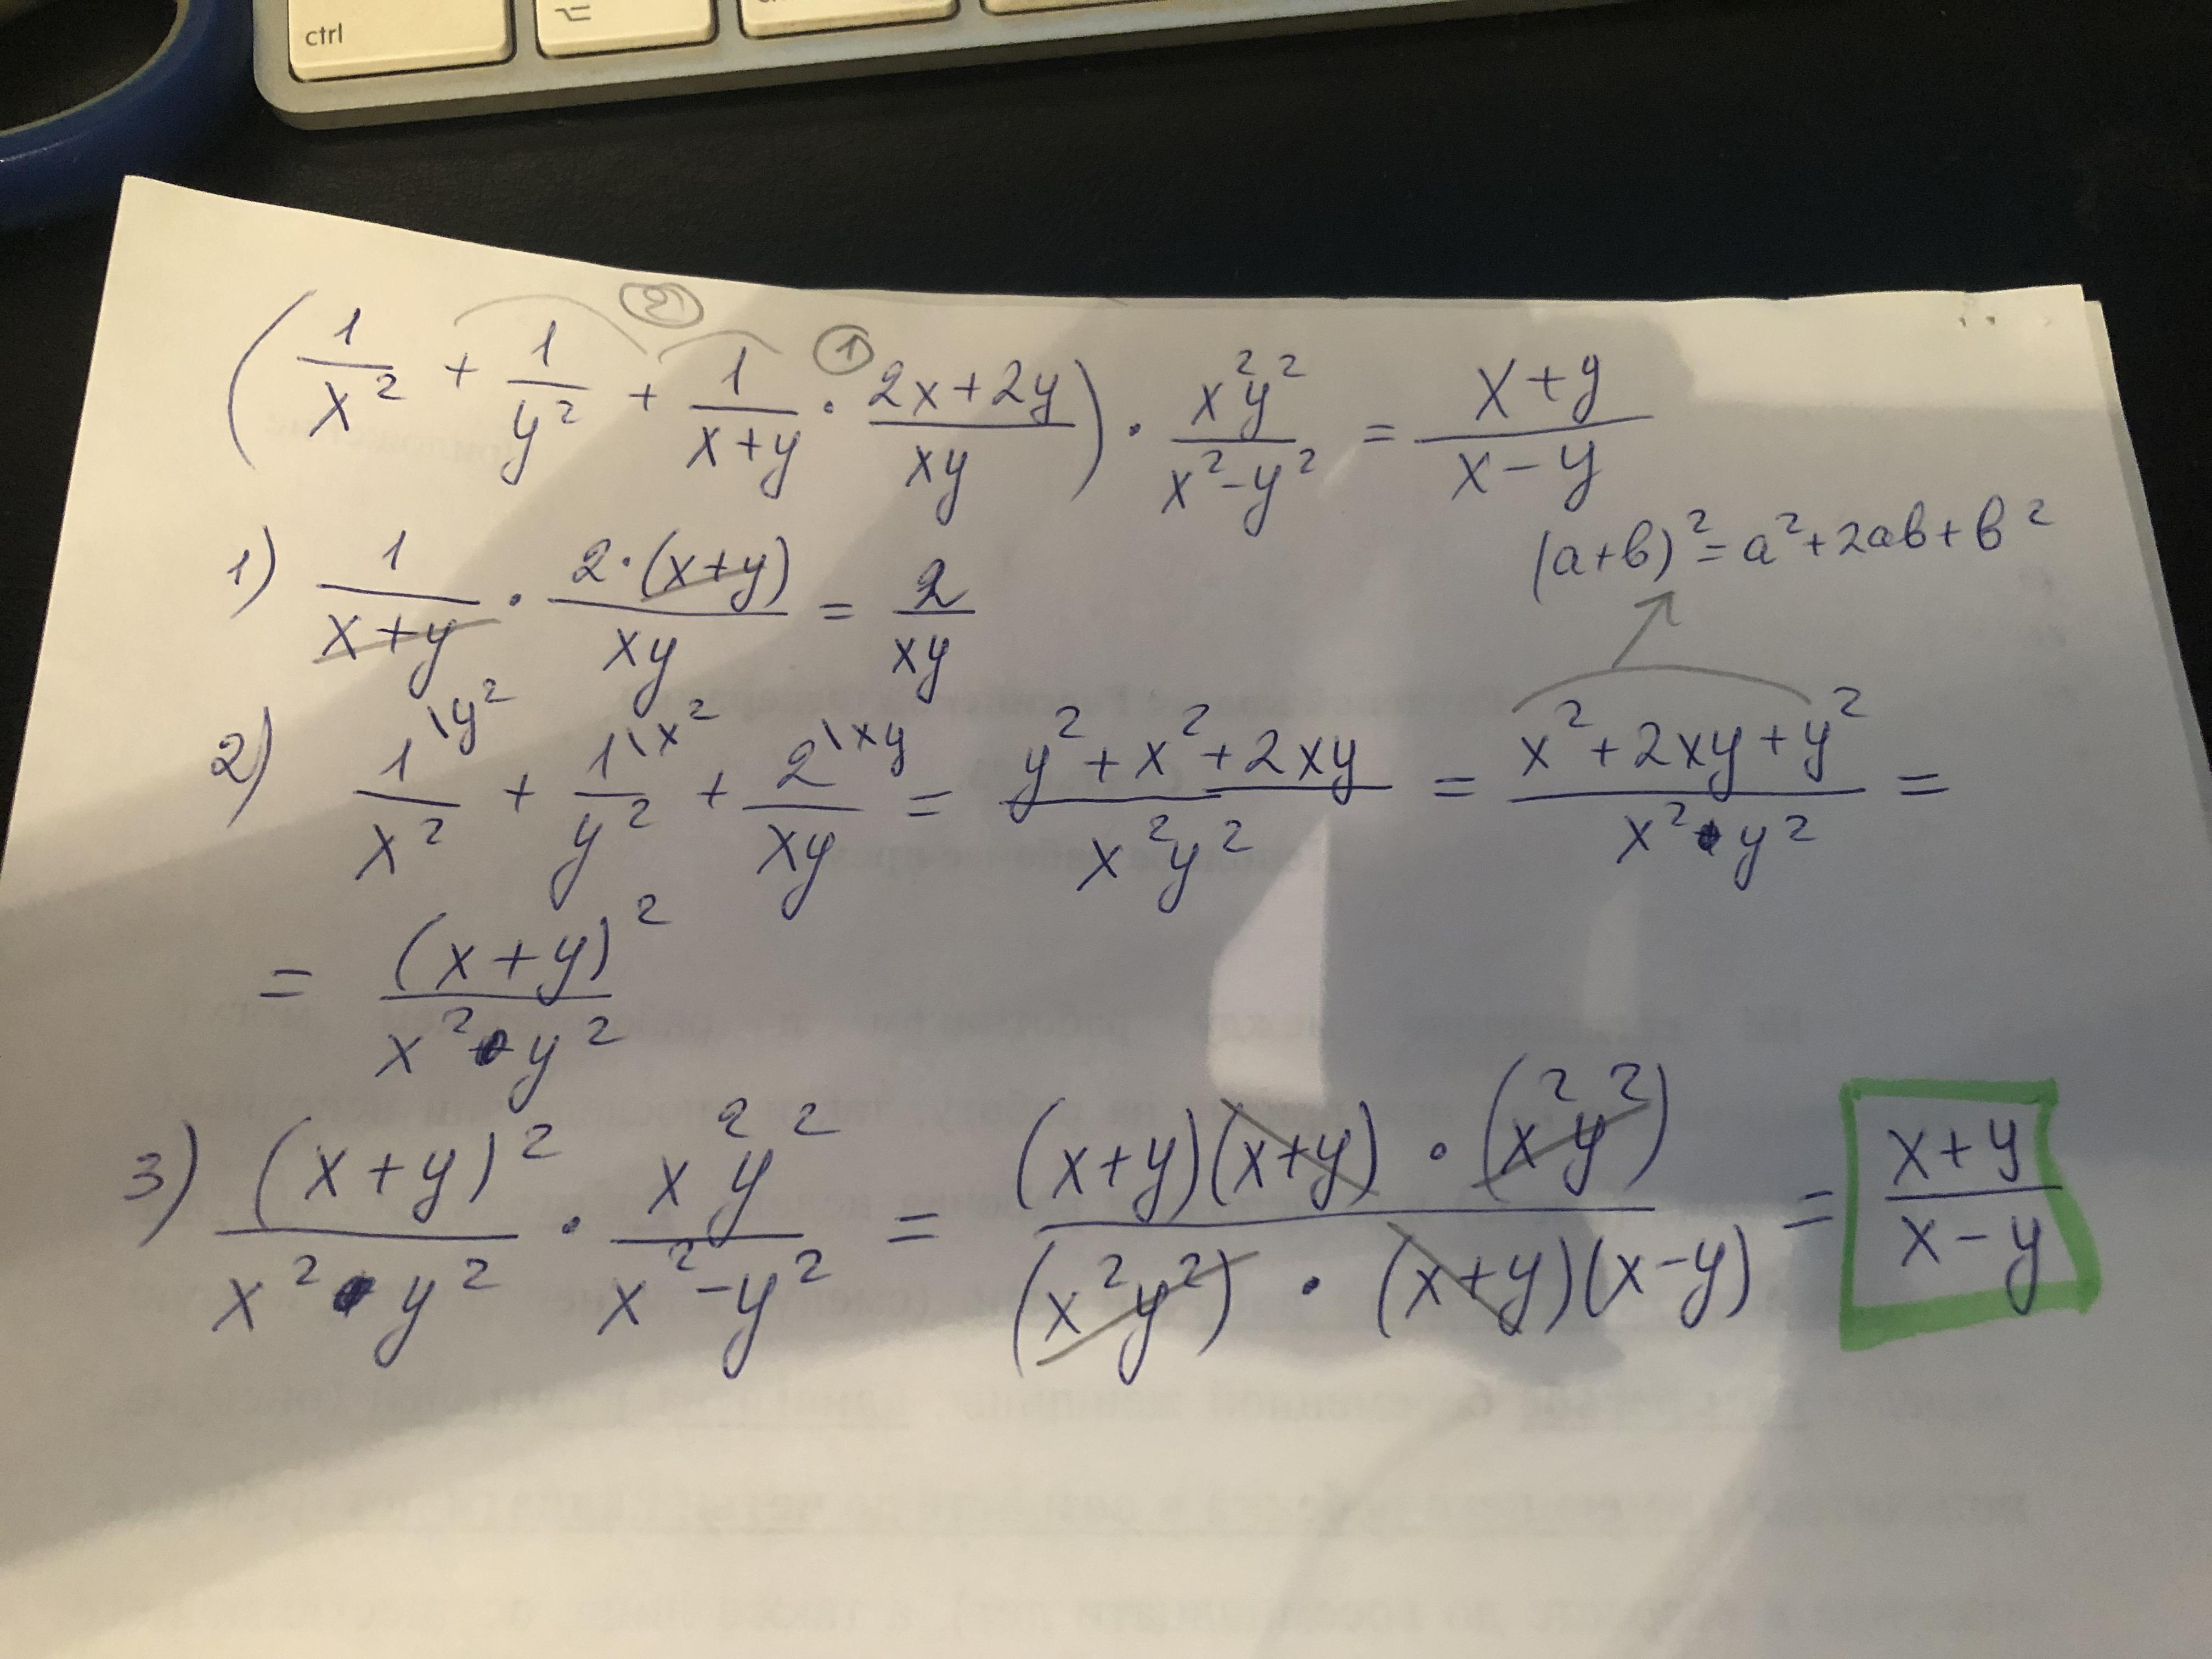 ctrl
② ①
(1/x² + 1/y² + 1/(x+y) · (2x+2y)/xy) · x²y²/(x²-y²) = (x+y)/(x-y)
(a+b)² = a²+2ab+b²
1) 1/(x+y) · 2·(x+y)/xy = 2/xy
2) 1\y²/x² + 1\x²/y² + 2\xy/xy = (y²+x²+2xy)/x²y² = (x²+2xy+y²)/(x²·y²) =
= (x+y)²/(x²·y²)
3) (x+y)²/(x²·y²) · x²y²/(x²-y²) = (x+y)(x+y)·(x²y²)/((x²y²)·(x+y)(x-y)) = (x+y)/(x-y)